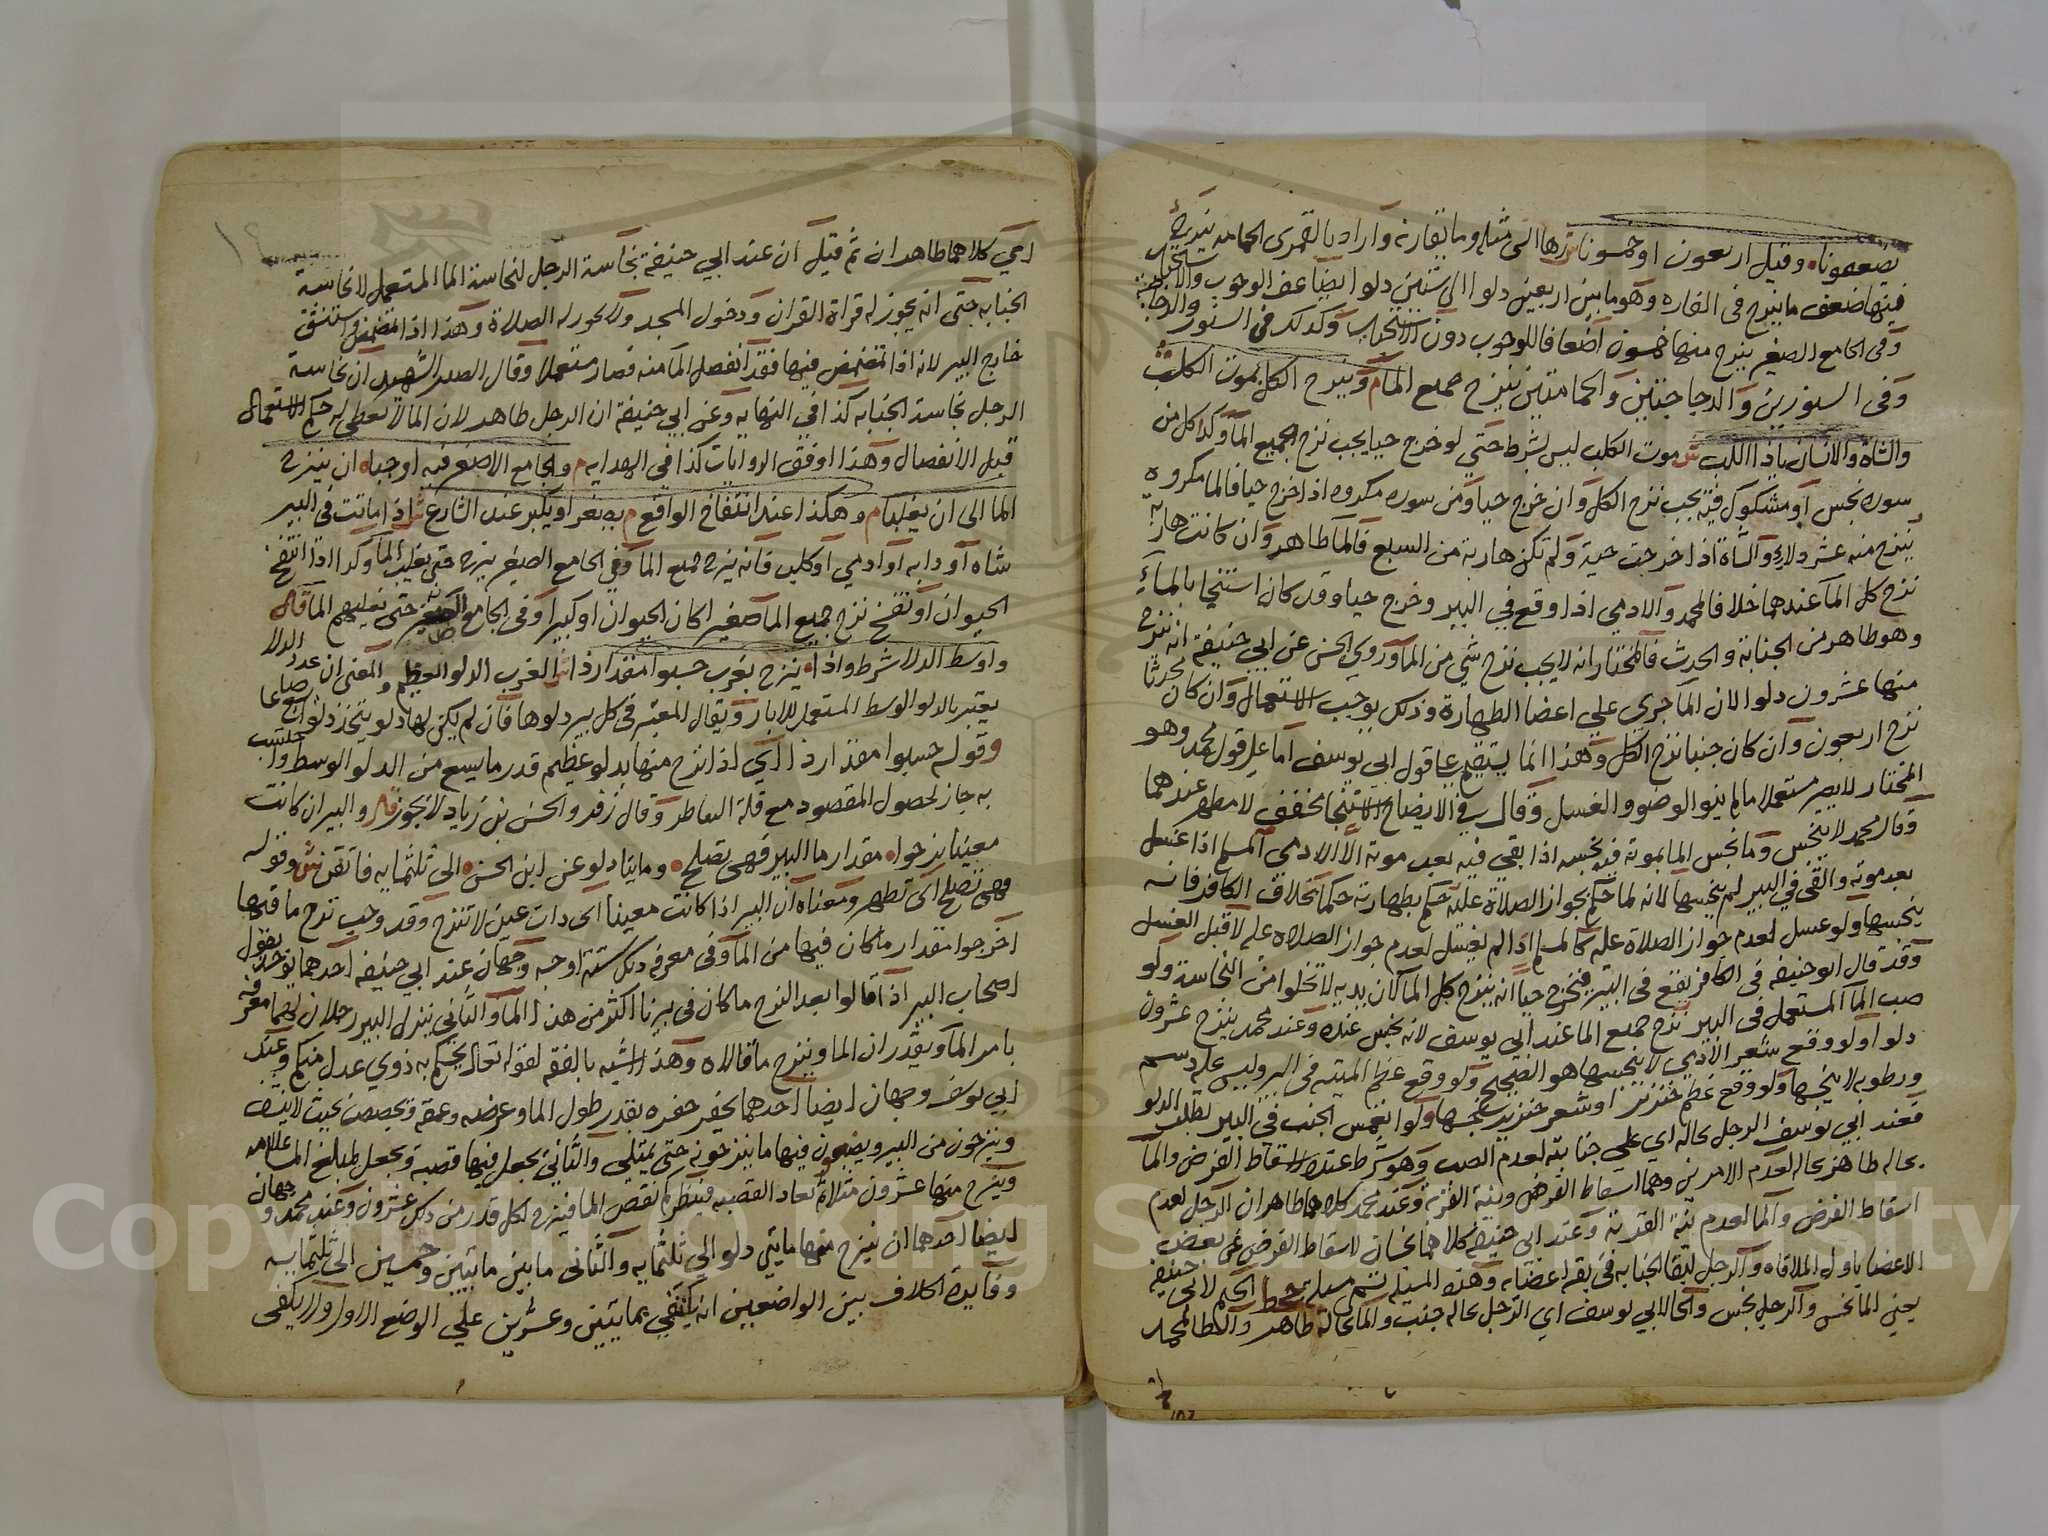 يضعفونا وقيل اربعون او خمسونا ش ها الى مثلها وما يقاربه واراد بالقمرى الحمامه ينزح
فيها ضعف ما ينزح فى الفاره وهو ما بين اربعين دلوا الى ستين دلوا ايضا عند الوجوب والاستحباب
وفى الجامع الصغير ينزح منها خمسون اضعافا للوجوب دون الاستحباب وكذلك فى السنور والدجاجة
وفى السنورين والدجاجتين والحمامتين ينزح جميع الما م وينزح الكل بموت الكلب
والشاة والانسان ياذا اللب ش موت الكلب ليس بشرط حتى لو خرج حيا يجب نزح جميع الما وكذا كل من
سوره نجس او مشكوك فيه يجب نزح الكل وان خرج حيا ومن سوره مكروه اذا خرج حيا فالما مكروه
ينزح منه عشر دلاء والشاة اذا خرجت حية ولم تكن هاربة من السبع فالما طاهر وان كانت هاربة
نزح كل الما عندهما خلافا لمحمد والادمي اذا وقع في البير وخرج حيا وقد كان استنجا بالماء
وهو طاهر من الجنابة والحدث فالمختار انه لا يجب نزح شي من الما وروي الحسن عن ابي حنيفة انه ينزح
منها عشرون دلوا لان الما جرى على اعضا الطهارة وذلك يوجب الاستعمال وان كان محدثا
نزح اربعون وان كان جنبا نزح الكل وهذا انما يستقيم على قول ابي يوسف اما على قول محمد وهو
المختار لا يصير مستعملا مالم ينو الوضو والغسل وقال في الايضاح الاستنجا مخفف لا مطهر عندهما
وقال محمد لا ينجس وما نجس الما بموته فيه نجسه اذا بقي فيه بعد موته الا الادمي المسلم اذا غسل
بعد موته والقى في البير لم ينجسها لانه لما حكم بجواز الصلاة عليه حكم بطهارته حكما بخلاف الكافر فانه
ينجسها ولو غسل لعدم جواز الصلاة عليه كالمسلم اذا لم يغسل لعدم جواز الصلاه عليه لا قبل الغسل
وقد قال ابو حنيفه فى الكافر يقع فى البير فيخرج حيا انه ينزح كل الما لان بدنه لا تخلوا من النجاسة ولو
صب الما المستعمل فى البير نزح جميع الما عند ابي يوسف لانه نجس عنده وعند محمد ينزح عشرون
دلوا ولو وقع شعر الادمي لا ينجسها هو الصحيح ولو وقع عظم الميته فى البير وليس عليه دسم
ورطوبه لا ينجسها ولو وقع عظم خنزير او شعر خنزير نجسها ولو انغمس الجنب في البير لطلب الدلو
فعند ابي يوسف الرجل بحاله اي على جنابته لعدم الصب وهو شرط عنده لاسقاط الفرض والما
بحاله طاهر بحاله لعدم الامرين وهما اسقاط الفرض ونية القربة وعند محمد كلاهما طاهران الرجل لعدم
اسقاط الفرض والما لعدم نية القربة وعند ابي حنيفه كلاهما نجسان لاسقاط الفرض عن بعض
الاعضا باول الملاقاه والرجل لبقا الجنابه فى بقية اعضايه وهذه المسيله تسمى مسلة جحط الجيم لابي حنيفة
يعني الما نجس والرجل نجس والحا لابي يوسف اي الرجل بحاله جنب والما بحاله طاهر والطا لمحمد
اي كلاهما طاهران ثم قيل ان عند ابي حنيفة نجاسة الرجل لنجاسة الما المستعمل لا نجاسة
الجنابه حتى انه يجوز له قراة القران ودخول المسجد ولا يجوز له الصلاة وهذا اذا تمضمض واستنشق
خارج البير لانه اذا تمضمض فيها فقد انفصل الما منه فصار مستعملا وقال الصدر الشهيد ان نجاسة
الرجل نجاسة الجنابه كذا في النهايه وعن ابي حنيفة ان الرجل طاهر لان الما لا يعطى له حكم الاستعمال
قبل الانفصال وهذا اوفق الروايات كذا في الهدايه م والجامع الاصغر فيه اوجباه ان ينزح
الما الى ان يغلبا م وهكذا عند انتفاخ الواقع م يصغر او يكبر عند الشارع ش اذا ماتت في البير
شاه او دابه او ادمي او كلب فانه ينزح جميع الما وفي الجامع الصغير ينزح حتى يغلب الما وكذا اذا انتفخ
الحيوان او تفسخ نزح جميع الما صغيرا كان الحيوان او كبيرا وفى الجامع الصغير حتى يغلبهم الما قال
واوسط الدلا شرط واذا ينزح بغرب حسبوا مقدار ذا ش الغرب الدلو العظيم والمعنى ان عدد الدلا
يعتبر بالدلو الوسط المستعمل للابار ويقال المعتبر فى كل بير دلوها فان لم يكن لها دلو يتخذ دلو يسع صاعا
وقوله حسبوا مقدار ذا اي اذا نزح منها بدلو عظيم قدر ما يسع من الدلو الوسط واحتسب
به جاز لحصول المقصود مع قلة التقاطر وقال زفر والحسن بن زياد لا يجوز قال والبير ان كانت
معينا نزحوا مقدار ما البير فهى تصلح وماتيا دلو عن ابن الحسن الى ثلثمايه فاتقن ش وقوله
فهى تصلح اى تطهر ومعناه ان البير اذا كانت معينا اى ذات عين لا تنزح وقد وجب نزح ما فيها
اخرجوا مقدار ما كان فيها من الما وفى معرفة ذلك ستة اوجه وجهان عند ابي حنيفه احدهما يوخذ بقول
اصحاب البير اذا قالوا بعد النزح ما كان فى بيرنا اكثر من هذا الما والثاني ينزل البير رجلان لهما معرفه
بامر الما ويقدران الما وينزح ما قالاه وهذا اشبه بالفقه لقوله تعالى يحكم به ذوي عدل منكم وعند
ابي يوسف وجهان ايضا احدهما يحفر حفره بقدر طول الما وعرضه وعمقه ويجصص بحيث لا ينشف
وينزحون من البير ويضعون فيها ما ينزحونه حتى يمتلي والثاني يجعل فيها قصبه ويجعل لمبلغ الما علامه
وينزح منها عشرون مثلا ثم تعاد القصبه فينظر كم نقص الما فينزح لكل قدر من ذلك عشرون وعند محمد وجهان
ايضا احدهما ان ينزح منها مايتي دلو الي ثلثمايه والثانى ما بين مايتين وخمسين الى ثلثمايه
وفايدة الخلاف بين الواضعين انه يكتفي بمايتين وعشرين علي الوضع الاول ولا يكفى
Copyright © King Saud University